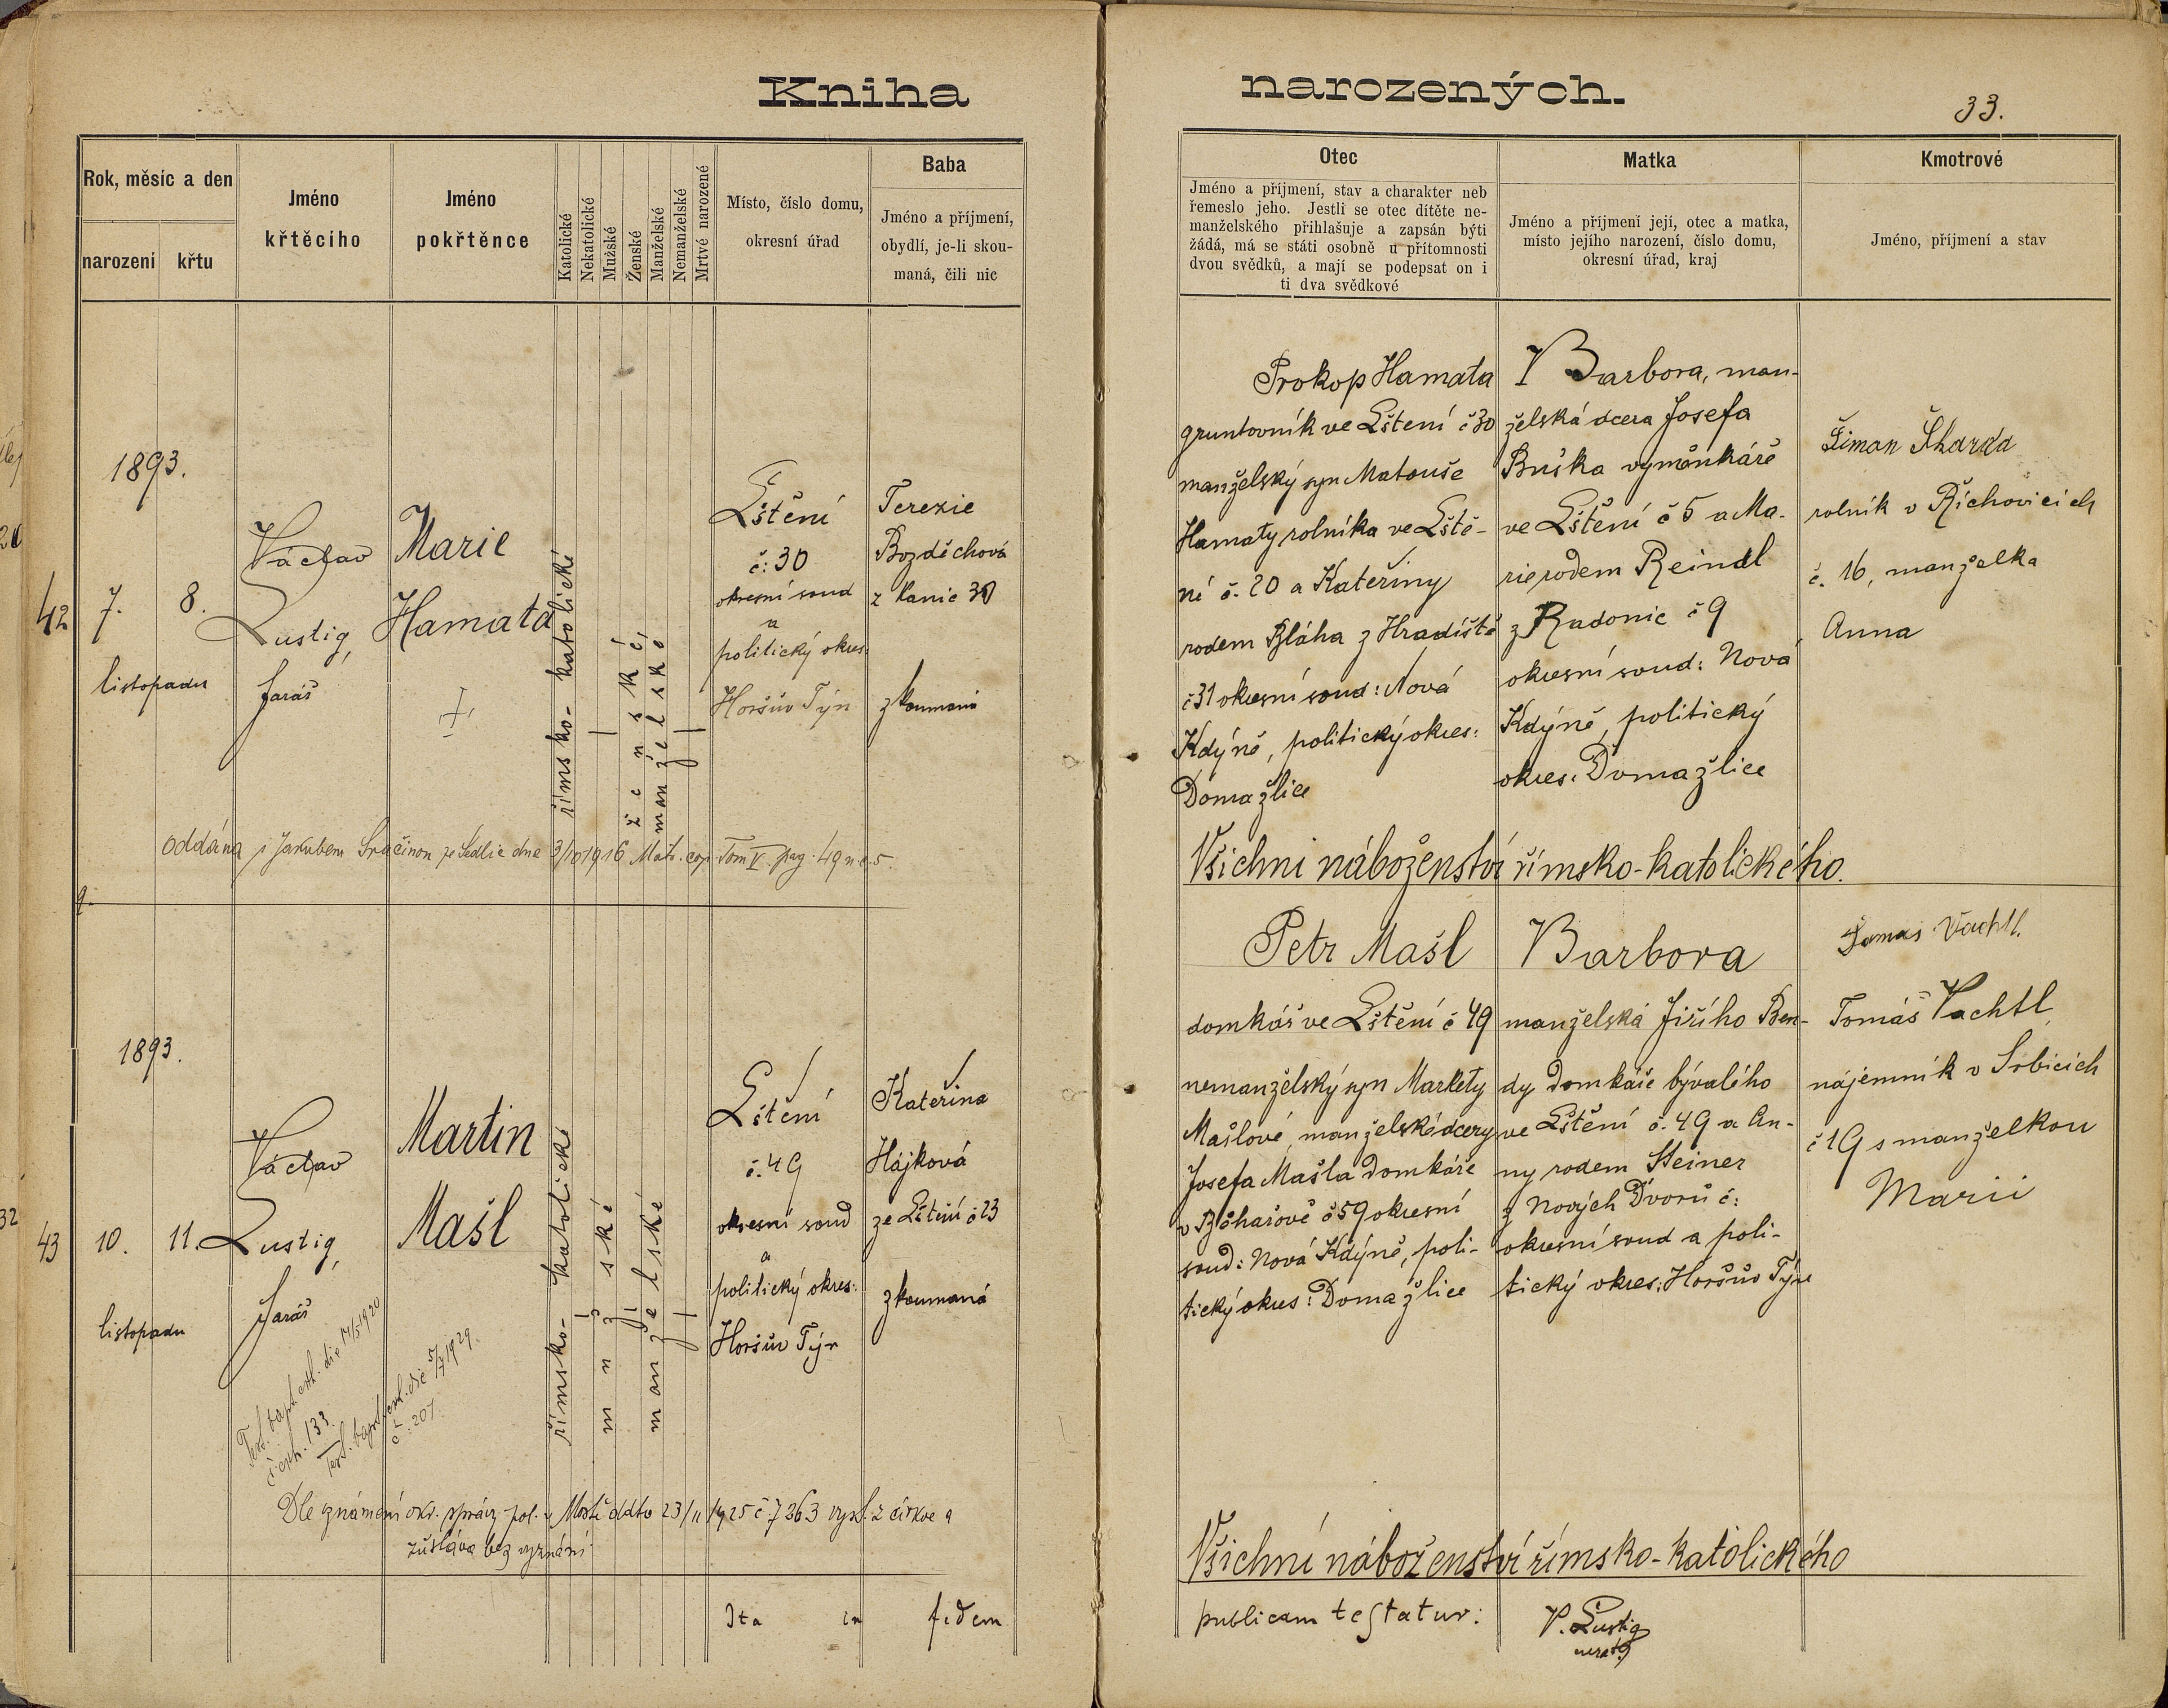 Kniha narozených.
33.
Rok, měsíc a den
narození
křtu
Jméno
křtěcího
Jméno
pokřtěnce
Katolické
Nekatolické
Mužské
Ženské
Manželské
Nemanželské
Mrtvé narozené
Místo, číslo domu,
okresní úřad
Baba
Jméno a příjmení,
obydlí, je-li skou-
maná, čili nic
Otec
Jméno a příjmení, stav a charakter neb
řemeslo jeho. Jestli se otec dítěte ne-
manželského přihlašuje a zapsán býti
žádá, má se státi osobně u přítomnosti
dvou svědků, a mají se podepsat on i
ti dva svědkové
Matka
Jméno a příjmení její, otec a matka,
místo jejího narození, číslo domu,
okresní úřad, kraj
Kmotrové
Jméno, příjmení a stav
42
1893.
7.
8.
listopadu
Václav
Lustig,
farář
Marie
Hamata
římsko-katolické
ženské
manželské
Lštění
č: 30
okresní soud
a
politický okres:
Horšův Týn
Terezie
Bozděchová
z Kanic 30
zkoumaná
Prokop Hamata
gruntovník ve Lštění č 30
manželský syn Matouše
Hamaty rolníka ve Lště-
ní č. 20 a Kateřiny
rodem Bláha z Hradiště
č 31 okresní soud: Nová
Kdýně, politický okres:
Domažlice
Barbora, man-
želská dcera Josefa
Buška vyměnkáře
ve Lštění č 5 a Ma-
rie rodem Reindl
z Radonic č 9
okresní soud: Nová
Kdýně, politický
okres: Domažlice
Šiman Škarda
rolník v Říchovicích
č. 16, manželka
Anna
Oddána s Jakubem ze Sedlic dne 3/10 1916 Matr. cop. Tom V pag. 49 n. c. 5.
Všichni náboženství římsko-katolického.
43
1893.
10.
11.
listopadu
Václav
Lustig,
farář
Martin
Mašl
římsko-katolické
mužské
manželské
Lštění
č. 49
okresní soud
a
politický okres:
Horšův Týn
Kateřina
Hájková
ze Lštění č 23
zkoumaná
Petr Mašl
domkář ve Lštění č 49
nemanželský syn Markéty
Mašlové, manželské dcery
Josefa Mašla domkáře
v Běhařově č 59 okresní
soud: Nová Kdýně, poli-
tický okres: Domažlice
Barbora
manželská Jiřího Ben-
dy domkáře bývalého
ve Lštění č. 49 a An-
ny rodem Steiner
z Nových Dvorů č:
okresní soud a poli-
tický okres: Horšův Týn
Tomas Vachtl.
Tomáš Vachtl,
nájemník v Srbicích
č 19 s manželkou
Marii
Test. bapt. exh. die 17/5 1920
č. exh. 133.
Test. bapt. die 5/7 1929.
č: 207.
Dle oznámení okr. správy pol. v Mostě ddto 23/11 1925 č 7263 vyst. z církve a
zůstává bez vyznání
Všichni náboženství římsko-katolického
Ita in fidem
publicam testatur:
V. Lustig